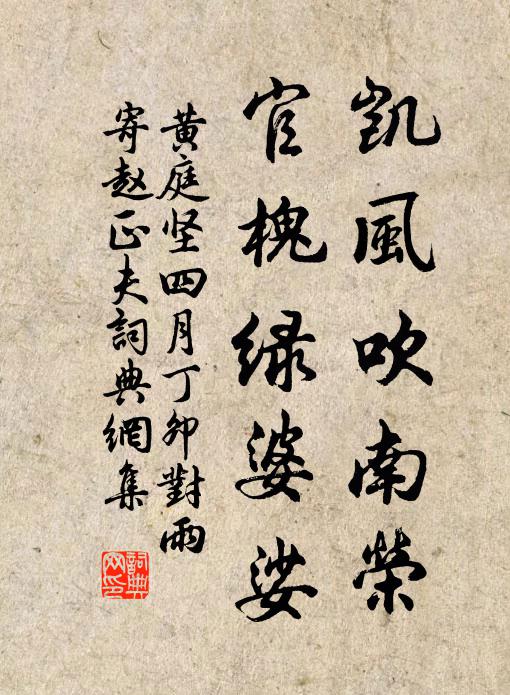 凱風吹南榮
官槐绿婆娑
黄庭坚四月丁卯對雨
寄赵正夫詞典網集
詞典网印